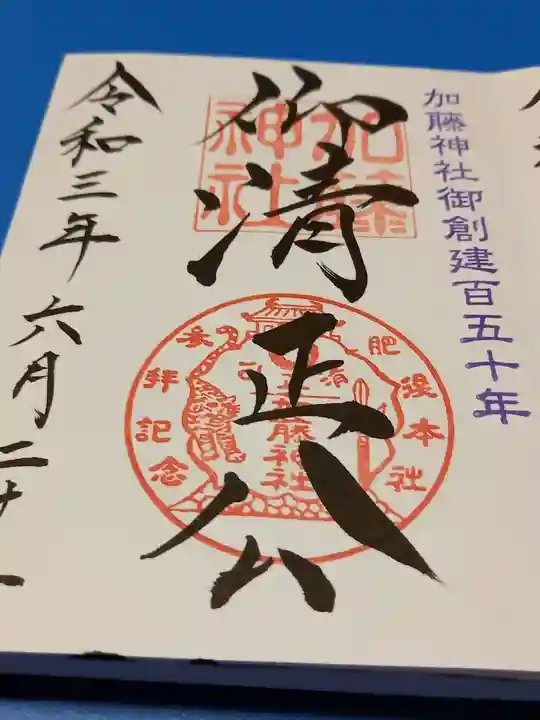 加藤神社御創建百五十年
御清正公
加藤神社
肥後本社
参拝記念
加藤神社
令和三年六月二十一